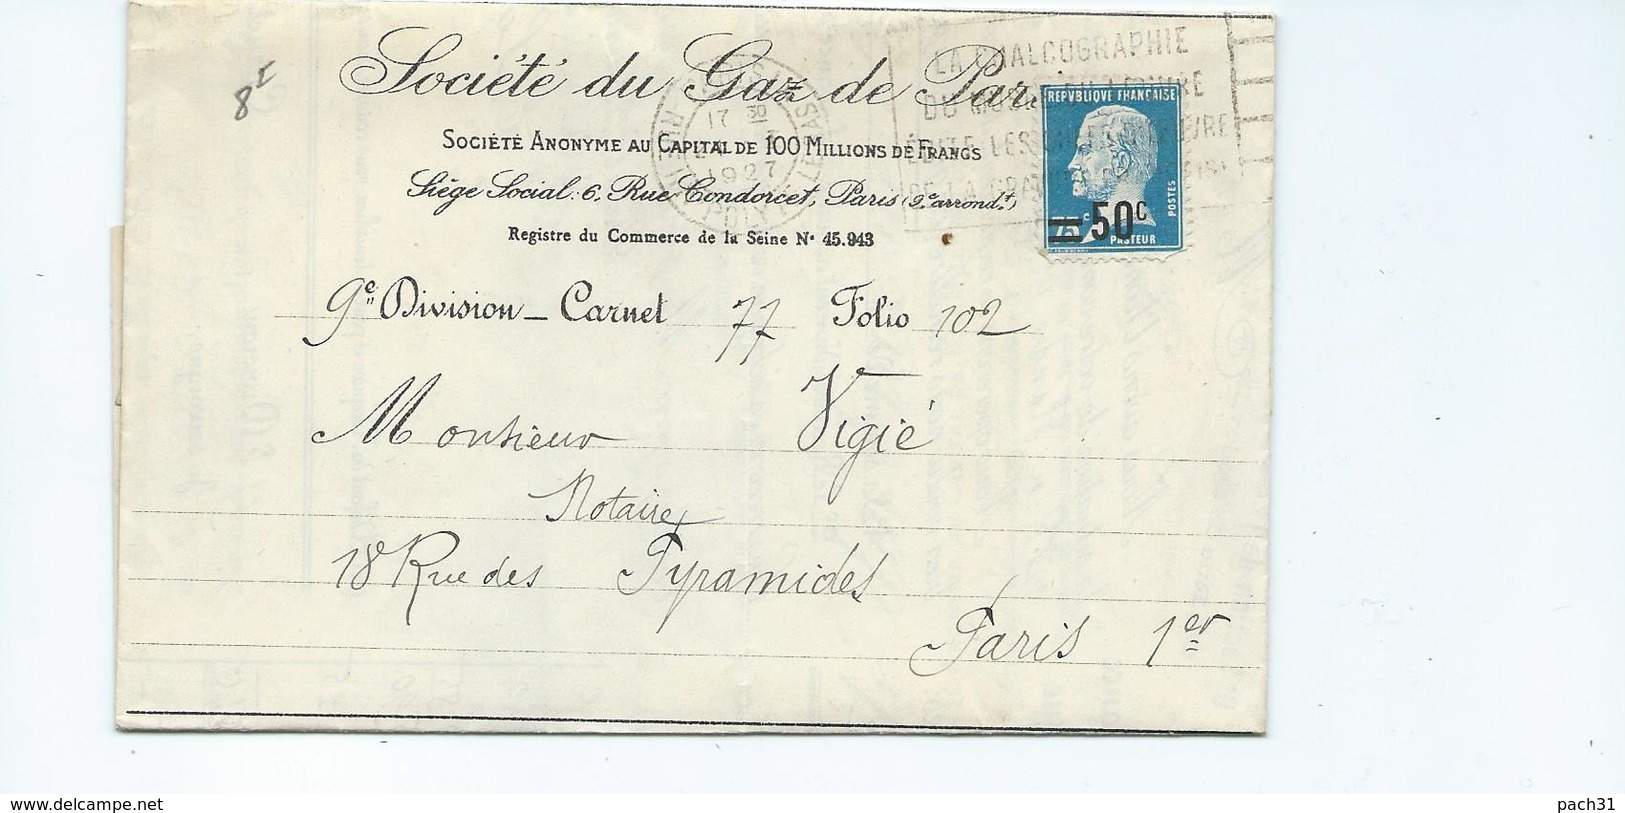 8 I
Société du Gaz de Par
SOCIÉTÉ ANONYME AU CAPITAL DE 100 MILLIONS DE FRANCS
Siège Social: 6, Rue Condorcet, Paris (9e arrondt)
Registre du Commerce de la Seine No 45.943
17 30
1927
LA CHALCOGRAPHIE
DU LOUVRE
LES
DE LA
REPVBLIQVE FRANÇAISE
POSTES
75c 50c
PASTEUR
9e Division _ Carnet 77 Folio 102
Monsieur Vigié
Notaire
18 Rue des Pyramides
Paris 1er
www.delcampe.net
pach31